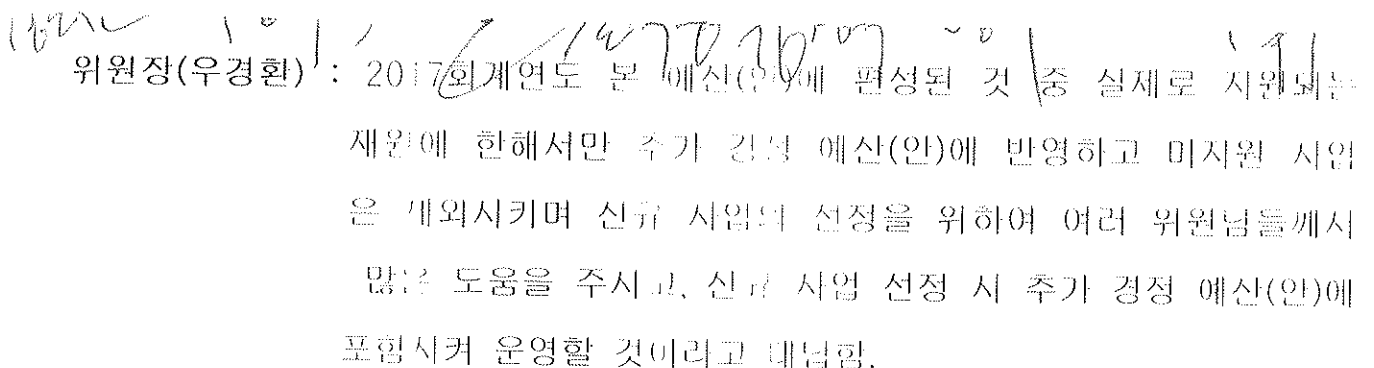 위원장(우경환) : 2017회계연도 본 예산(안)에 편성된 것 중 실제로 지원되는
재원에 한해서만 추가 경정 예산(안)에 반영하고 미지원 사업
은 제외시키며 신규 사업의 선정을 위하여 여러 위원님들께서
많은 도움을 주시고, 신규 사업 선정 시 추가 경정 예산(안)에
포함시켜 운영할 것이라고 대답함.